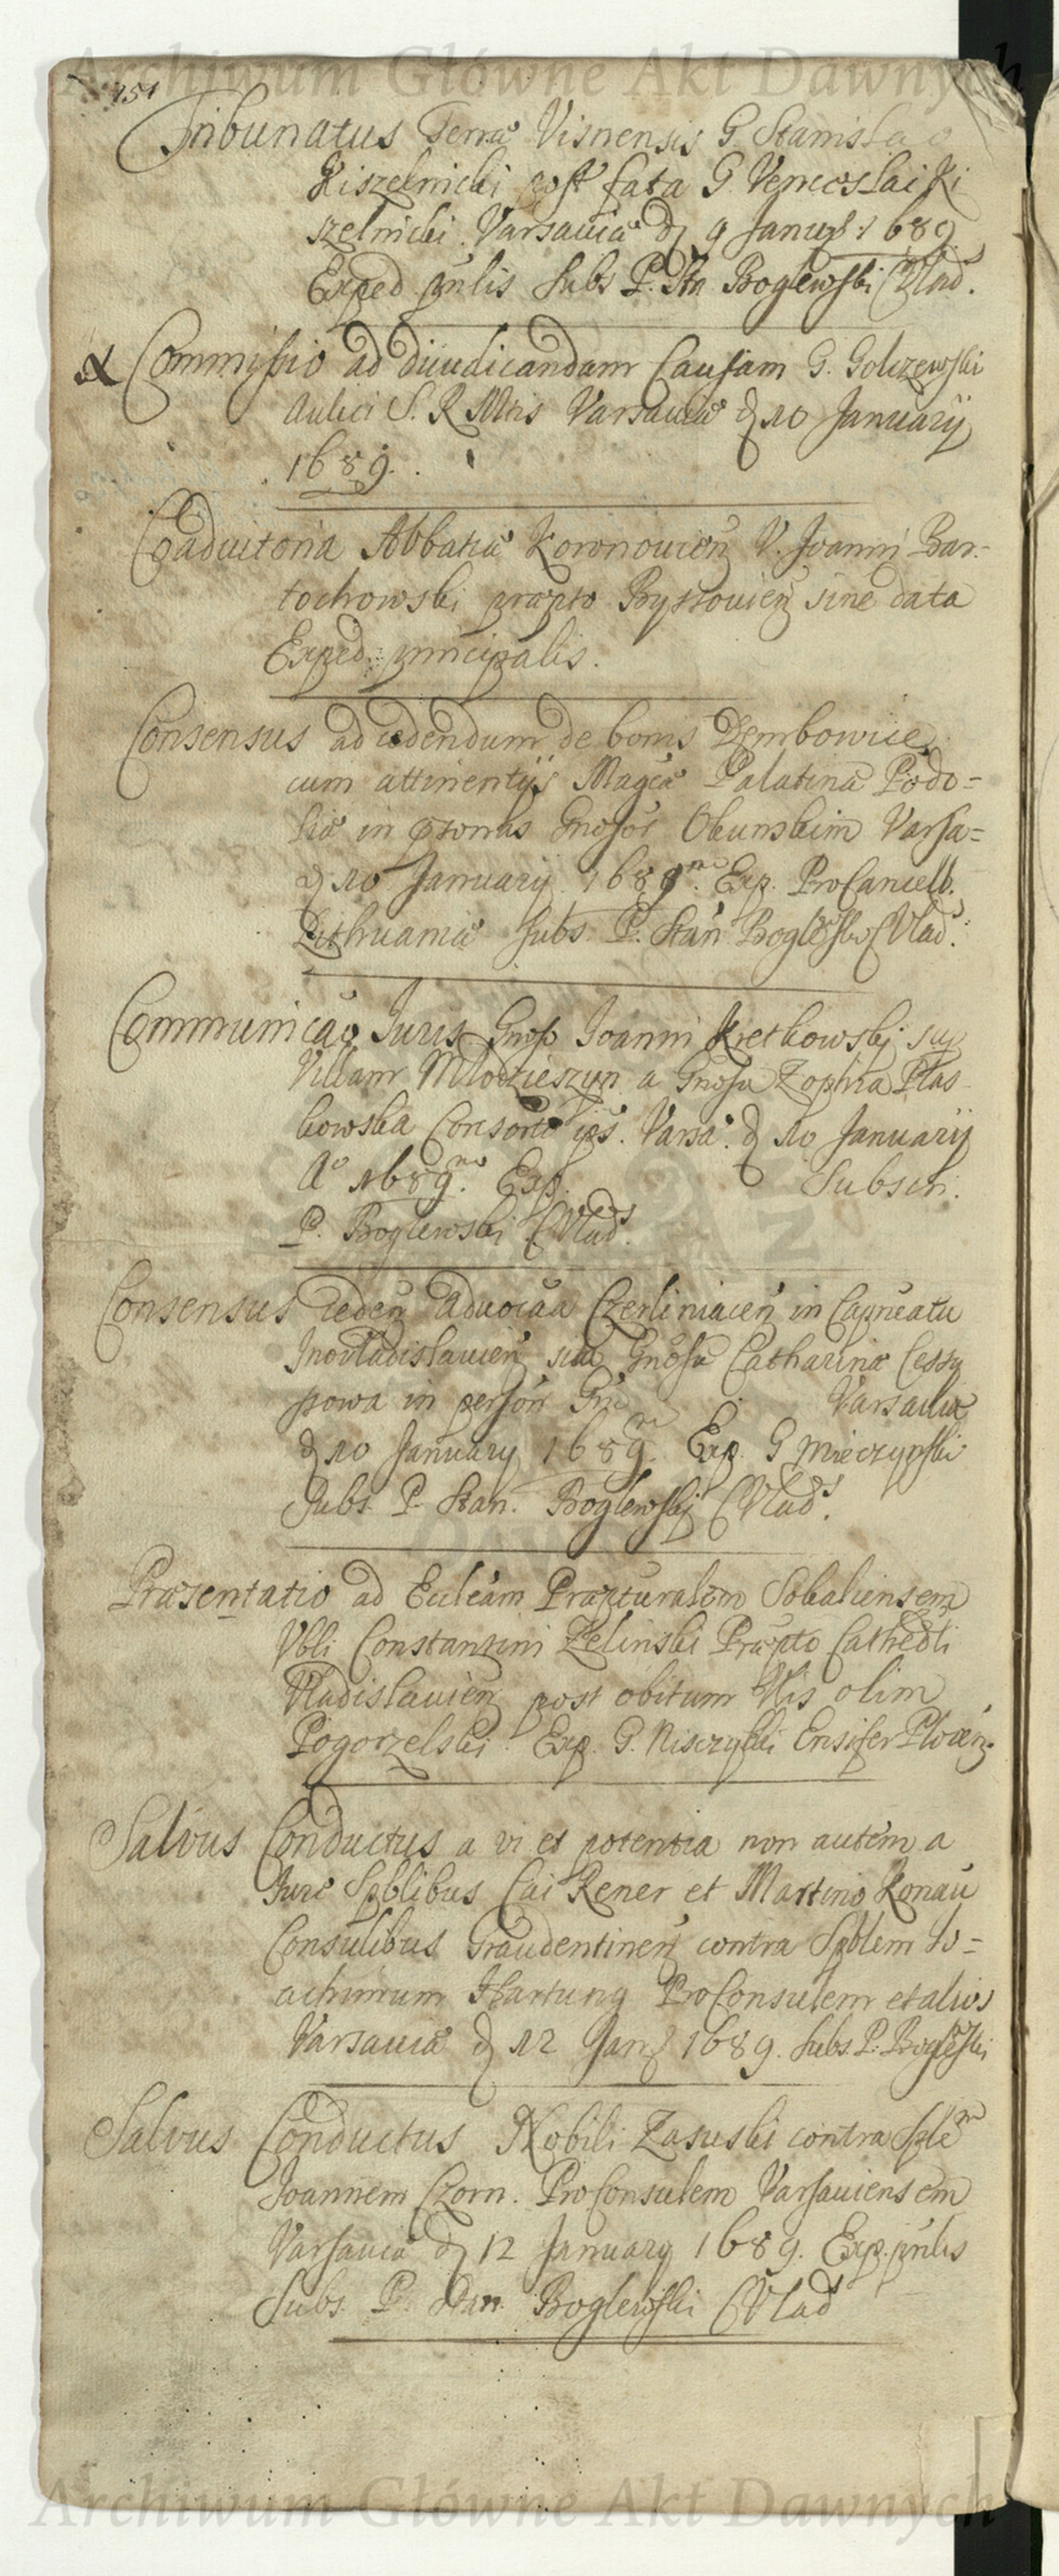 Archiwum Główne Akt Dawnych
151
Tribunatus Terræ Visnensis G. Stanislao
Kiszelnicki post fata G. Venceslai Ki
szelnicki. Varsaviæ d. 9 January 1689
Exped. pnlis Subs P. Stn Boglewski CVlad.
Commissio ad diiudicandam Causam G. Golczewski
Aulici S. R. Mtis Varsaviæ d 10 January
1689.
Coadiutoria Abbatiæ Koronovien V. Joanni Bar-
tochowski præpto Byssovien sine data
Exped. principalis.
Consensus ad cedendum de bonis Dembowice
cum attinentys Magcæ Palatinæ Podo=
liæ in psonas Gnosor Okunskim Varsa=
d 10 January 1689no. Exp. ProCancell.
Lithuaniæ Subs. P. Stan Boglewski CVlad.
Communicao Juris Gnoso Joanni Kretkowski sup
Villam Mlodzieszyn a Gnosa Zophia Plas
kowska Consorte ips. Varsa. d 10 January
Ao 1689no. Exp. Subscr.
P. Boglewski CVlads.
Consensus cedendi Advocaa Czerliniacen in Capneatu
Inovladislavien siæ Gnosæ Catharinæ Cessy
powa in person Gni Varsaviæ
d 10 January 1689. Exp. G Mieczynski
Subs. P. Stan. Boglewski CVlads.
Præsentatio ad Eccleam Præpturalem Sobaliensem
Vbli Constantini Zelinski Præpto Cathedli
Vladislavien post obitum Vlis olim
Pogorzelski. Exp. G. Nisczycki Ensifer Plocen.
Salvus Conductus a vi et potentia non autem a
Jure Spblibus Cai Rener et Martino Konau
Consulibus Graudentinen contra Spblem Jo=
achimum Hartung ProConsulem et alios
Varsaviæ d 12 Jan 1689. Subs. P. Boglewski
Salvus Conductus Nobili Zasuski contra Splem
Joannem Czorn. ProConsulem Varsaviensem
Varsaviæ d 12 January 1689. Exp. pnlis
Subs. P. Stan. Boglewski CVlad
Archiwum Główne Akt Dawnych